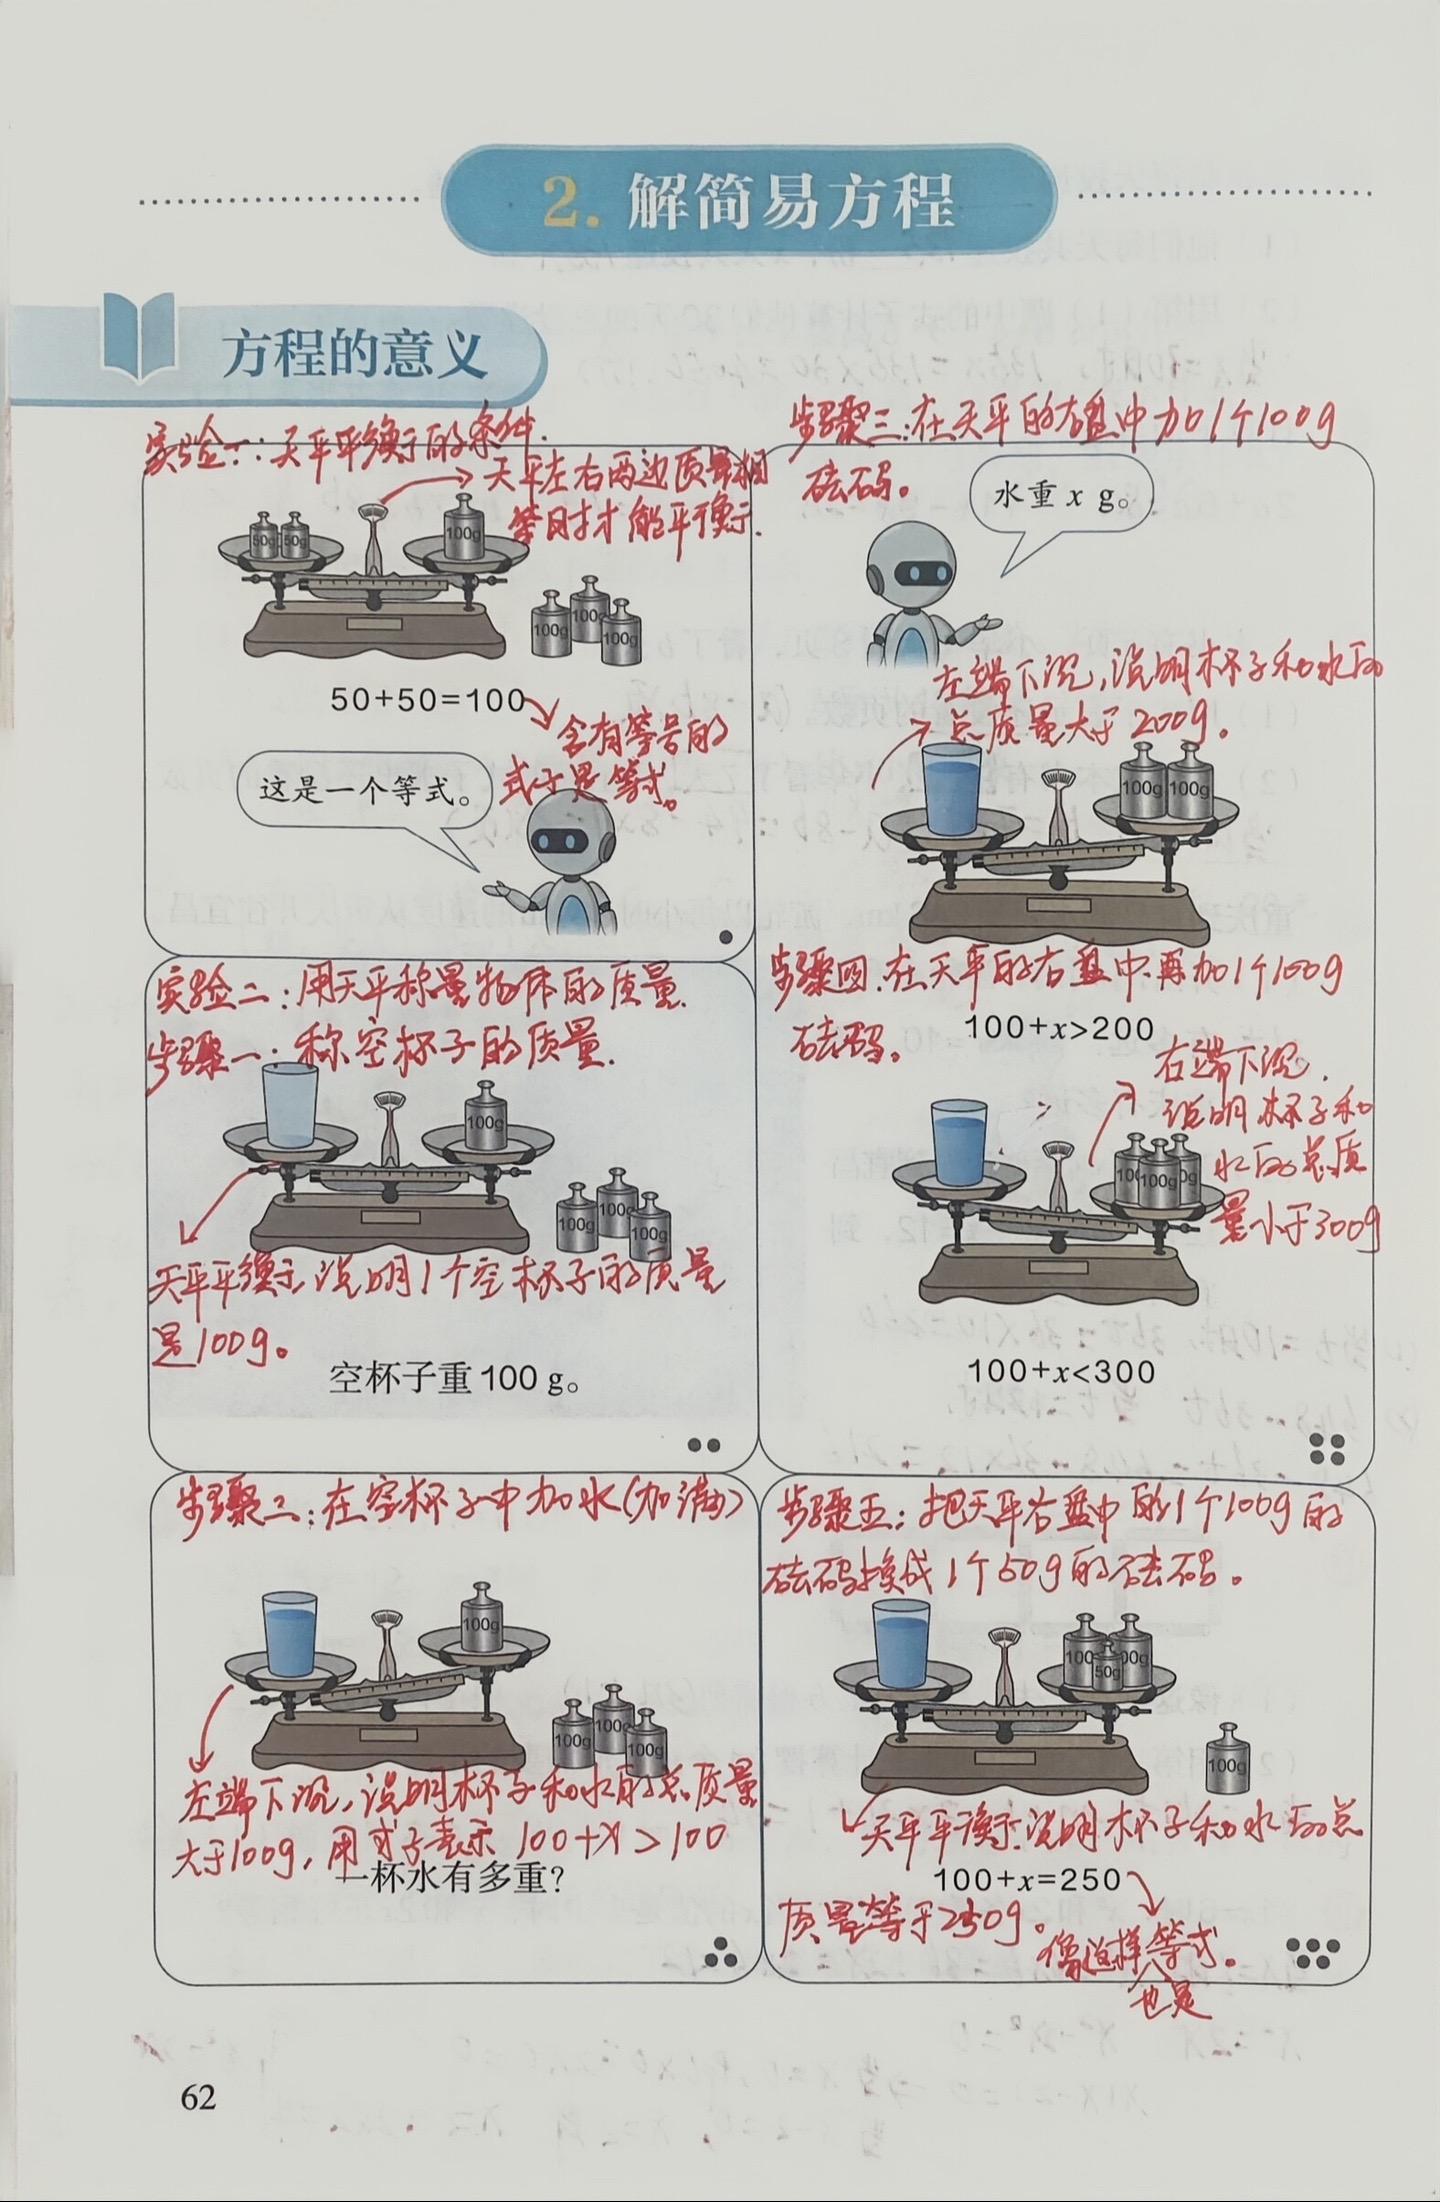 2. 解简易方程
方程的意义
实验一：天平平衡的条件.
天平左右两边质量相
等时才能平衡.
50g 50g
100g
100g 100g 100g
50+50=100
含有等号的
式子是等式。
这是一个等式。
实验二：用天平称量物体的质量.
步骤一：称空杯子的质量.
100g
100g 100g 100g
天平平衡，说明1个空杯子的质量
是100g。
空杯子重 100 g。
步骤二：在空杯子中加水（加满）
100g
100g 100g 100g
左端下沉，说明杯子和水的总质量
大于100g，用式子表示 100+x＞100
一杯水有多重？
步骤三：在天平的右盘中加1个100g
砝码。
水重 x g。
左端下沉，说明杯子和水的
总质量大于200g。
100g 100g
步骤四：在天平的右盘中再加1个100g
砝码。
100+x>200
右端下沉.
说明杯子和
水的总质
量小于300g
100g
100+x<300
步骤五：把天平右盘中的1个100g的
砝码换成1个50g的砝码。
50g
100g
天平平衡.说明杯子和水的总
100+x=250
质量等于250g。
像这样也是等式。
62